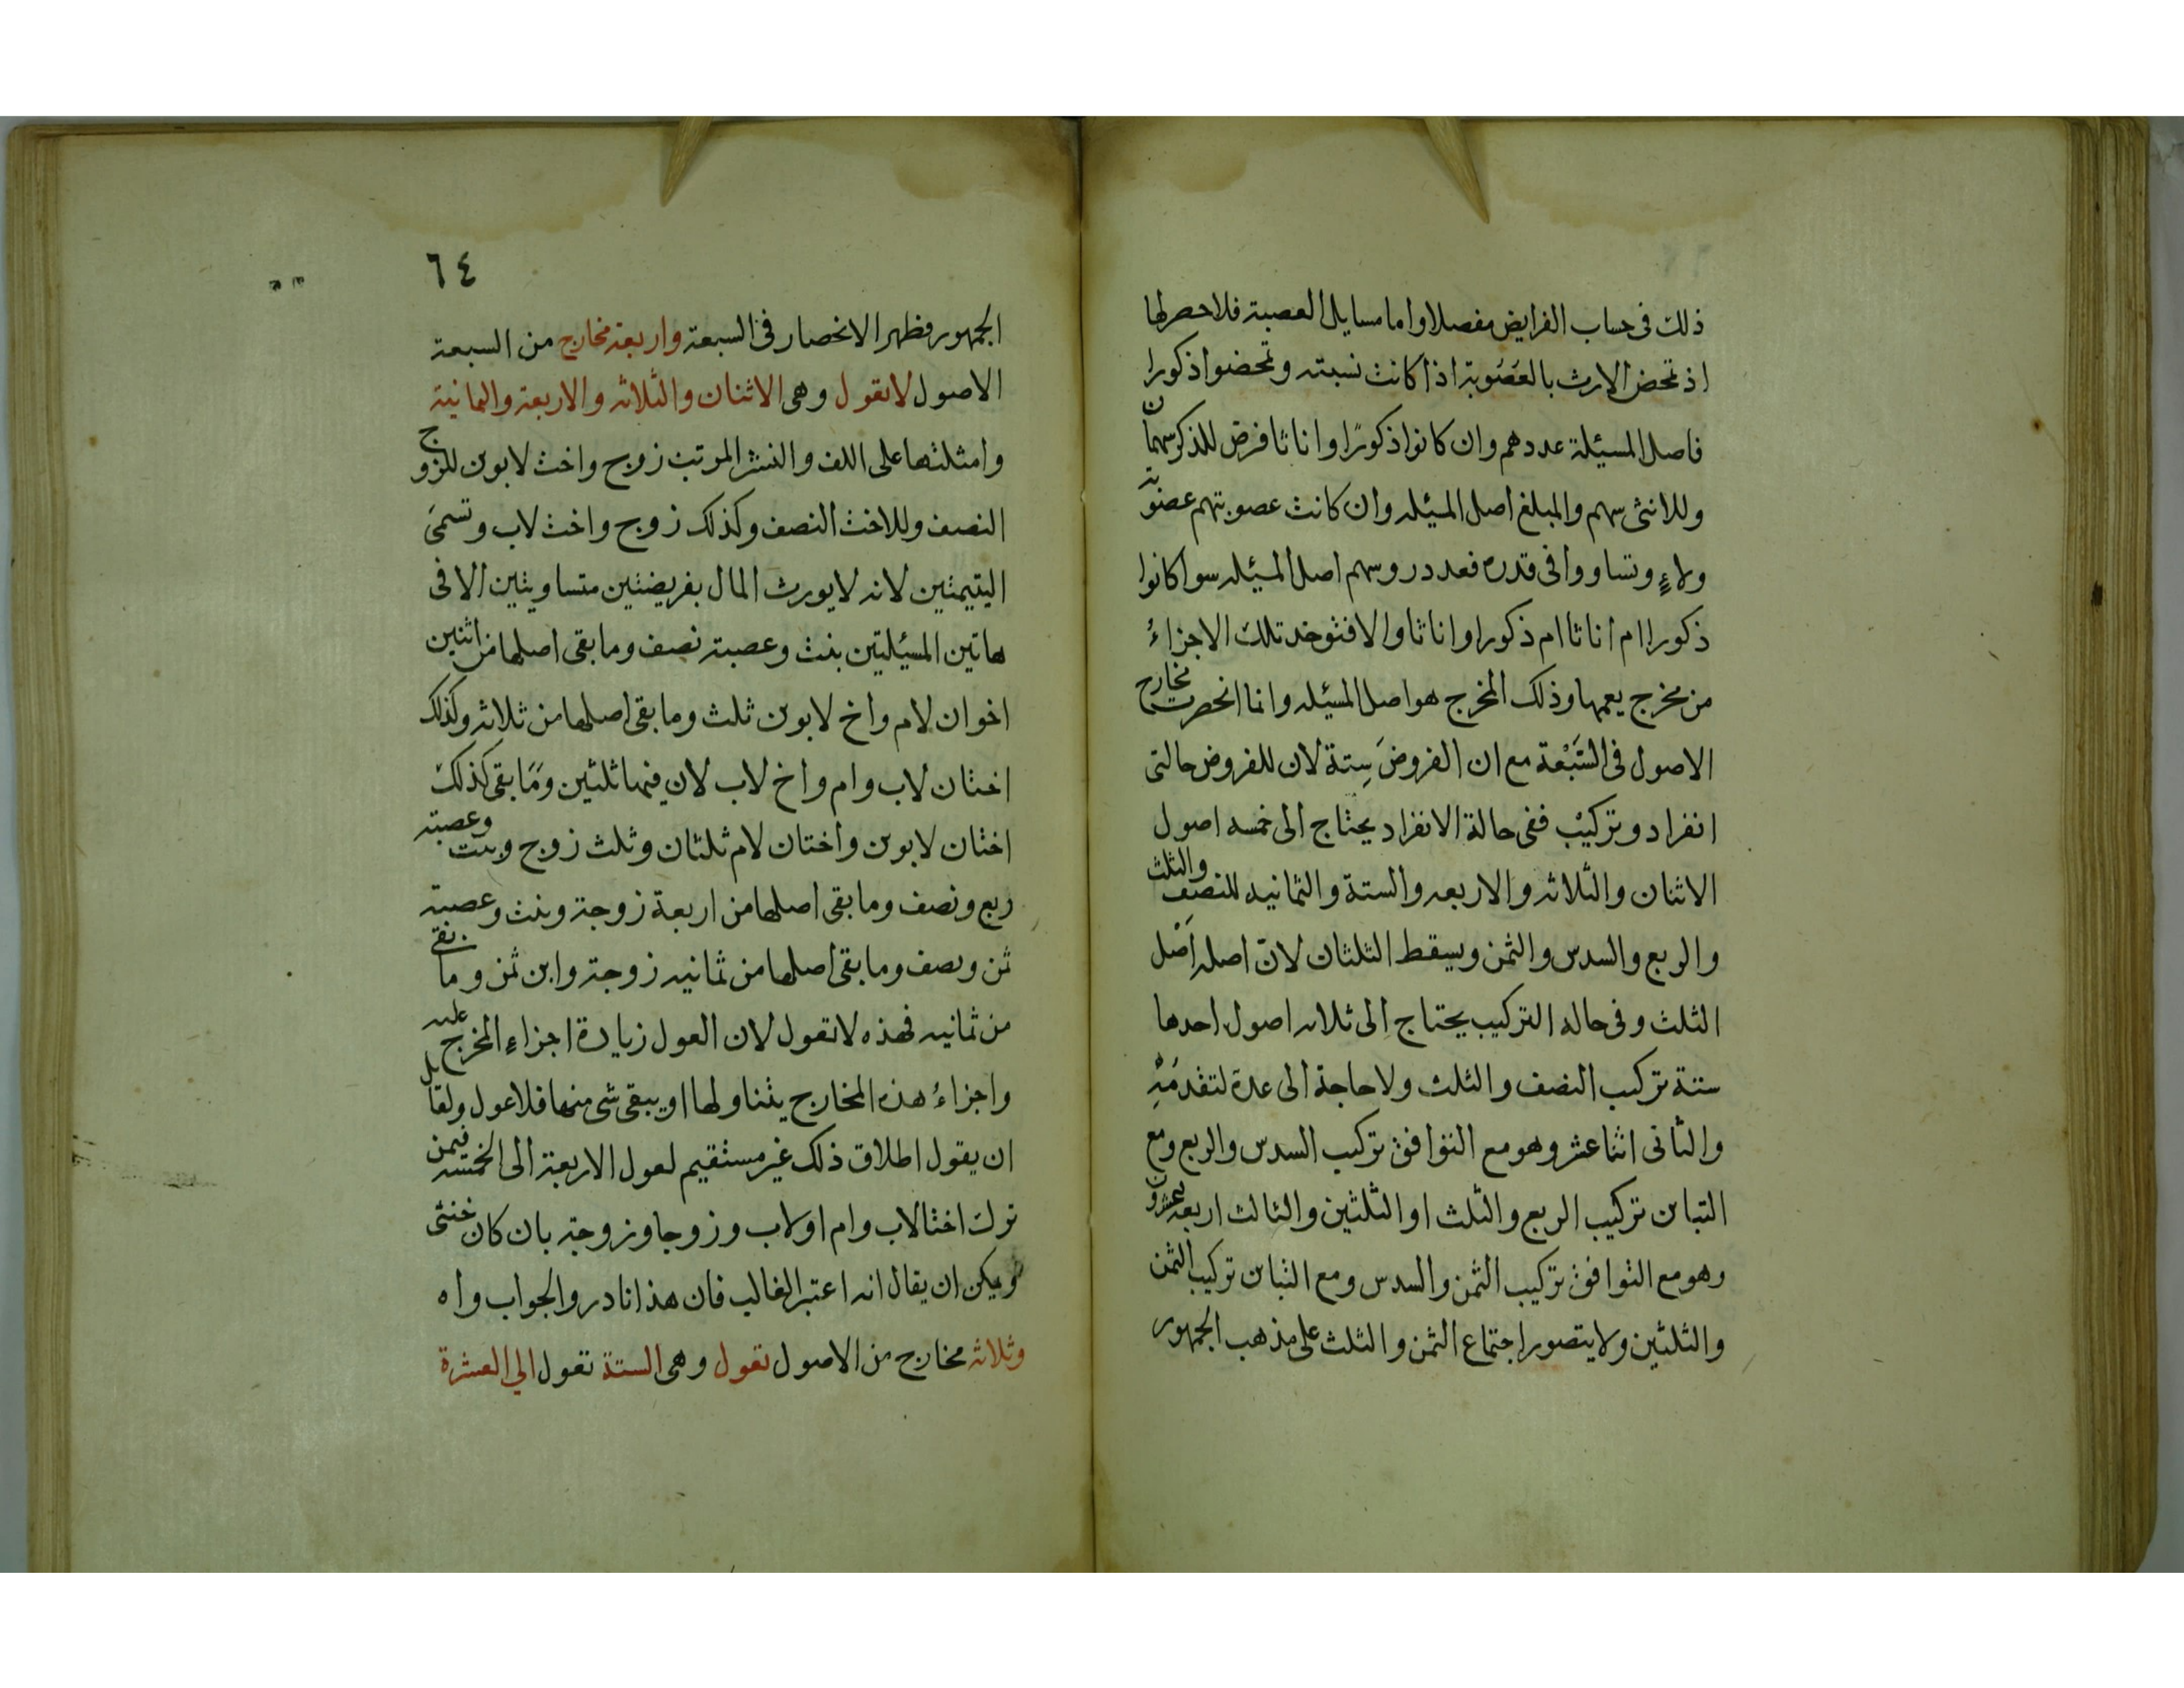 ذلك فى حساب الفرايض مفصلا واما مسايل العصبة فلا حصر لها
اذ تمحض الارث بالعَصَوبة اذا كانت نسبته وتمحضوا ذكورا
فاصل المسئيلة عددهم وان كانوا ذكورًا واناثا فرض للذكر سهمان
وللانثى سهم والمبلغ اصل المسئيله وان كانت عصوبتهم عصوبة
ولاءٍ وتساووا فى قدره فعدد روسهم اصل المسئيله سوا كانوا
ذكورا ام اناثا ام ذكورا واناثا والا فتوخد تلك الاجزاءُ
من مخرج يعمها وذلك المخرج هو اصل المسئيله وانما انحصرت مخارج
الاصول فى السَّبْعة مع ان الفروضَ سِتة لان للفروض حالتى
انفراد وتركيْب ففى حالة الانفراد يحتاج الى خمسه اصول
الاثنان والثلاثه والاربعه والستة والثمانيه للنصف والثلث
والربع والسدس والثمن ويسقط الثلثان لانّ اصله اَصْل
الثلث وفى حاله التركيب يحتاج الى ثلاثه اصول احدها
ستة تركيب النصف والثلث ولا حاجة الى عدة لتقدمَهِ
والثانى اثنا عشر وهو مع التوافق تركيب السدس والربع ومع
التباين تركيب الربع والثلث او الثلثين والثالث اربعه وعشرون
وهو مع التوافق تركيب الثمن والسدس ومع التباين تركيب الثمن
والثلثين ولا يتصور اجتماع الثمن والثلث على مذهب الجمهور
٦٤
الجمهور فظهر الانحصار فى السبعة واربعة مخارج من السبعة
الاصول لا تعول وهى الاثنان والثلاثه والاربعة والثمانية
وامثلتها على اللف والنشر المرتب زوج واخت لابوين للزوج
النصف وللاخت النصف وكذلك زوج واخت لاب وتسمى
اليتيمتين لانه لا يورث المال بفريضتين متساويتين الا فى
هاتين المسئيلتين بنت وعصبة نصف وما بقى اصلها من اثنين
اخوان لام واخ لابوين ثلث وما بقى اصلها من ثلاثه وكذلك
اختان لاب وام واخ لاب لان فيها ثلثين وَمَا بقى كذلك
اختان لابوين واختان لام ثلثان وثلث زوج وبنت وعصبة
ربع ونصف وما بقى اصلها من اربعة زوجة وبنت وعصبة
ثمن ونصف وما بقى اصلها من ثمانيه زوجة وابن ثمن وما بقى
من ثمانيه فهذه لا تعول لان العول زيادة اجزاء المخرج عليه
واجزاءُ هذه المخارج يتناولها او يبقى شى منها فلا عول ولقايل
ان يقول اطلاق ذلك غير مستقيم لعول الاربعة الى الخمسه فيمن
ترك اختا لاب وام او لاب وزوجا وزوجة بان كان خنثى
ويمكن ان يقال انه اعتبر الغالب فان هذا نادر والجواب واه
وثلاثه مخارج من الاصول تعول وهى الستة تعول الي العشرة